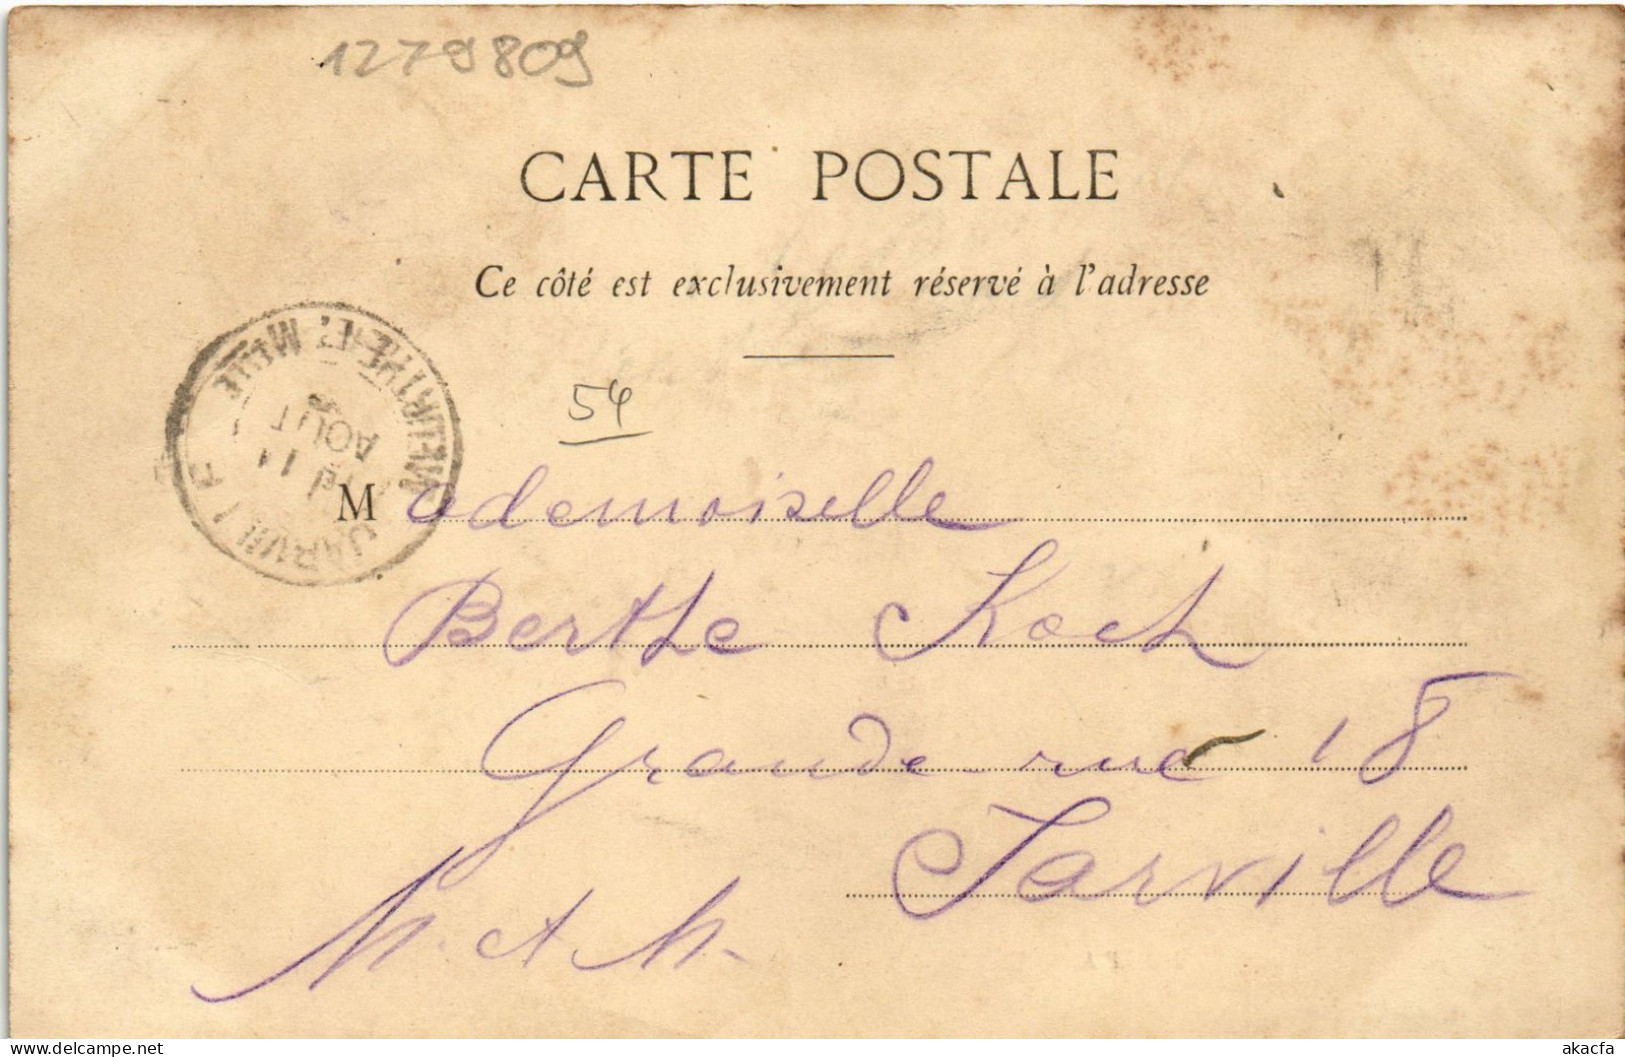 1279809
CARTE POSTALE
Ce côté est exclusivement réservé à l'adresse
54
JARVILLE
MEURTHE-ET-MOSELLE
11
AOUT
Mademoiselle
Berthe Koch
Grande rue 18
Jarville
M. et M.
akacfa
delcampe.net